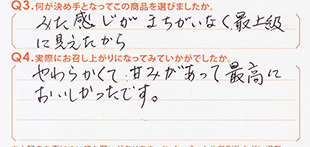 Q3.何が決め手となってこの商品を選びましたか。
みた感じがまちがいなく最上級
に見えたから
Q4.実際にお召し上がりになってみていかがでしたか。
やわらかくて甘みがあって最高に
おいしかったです。